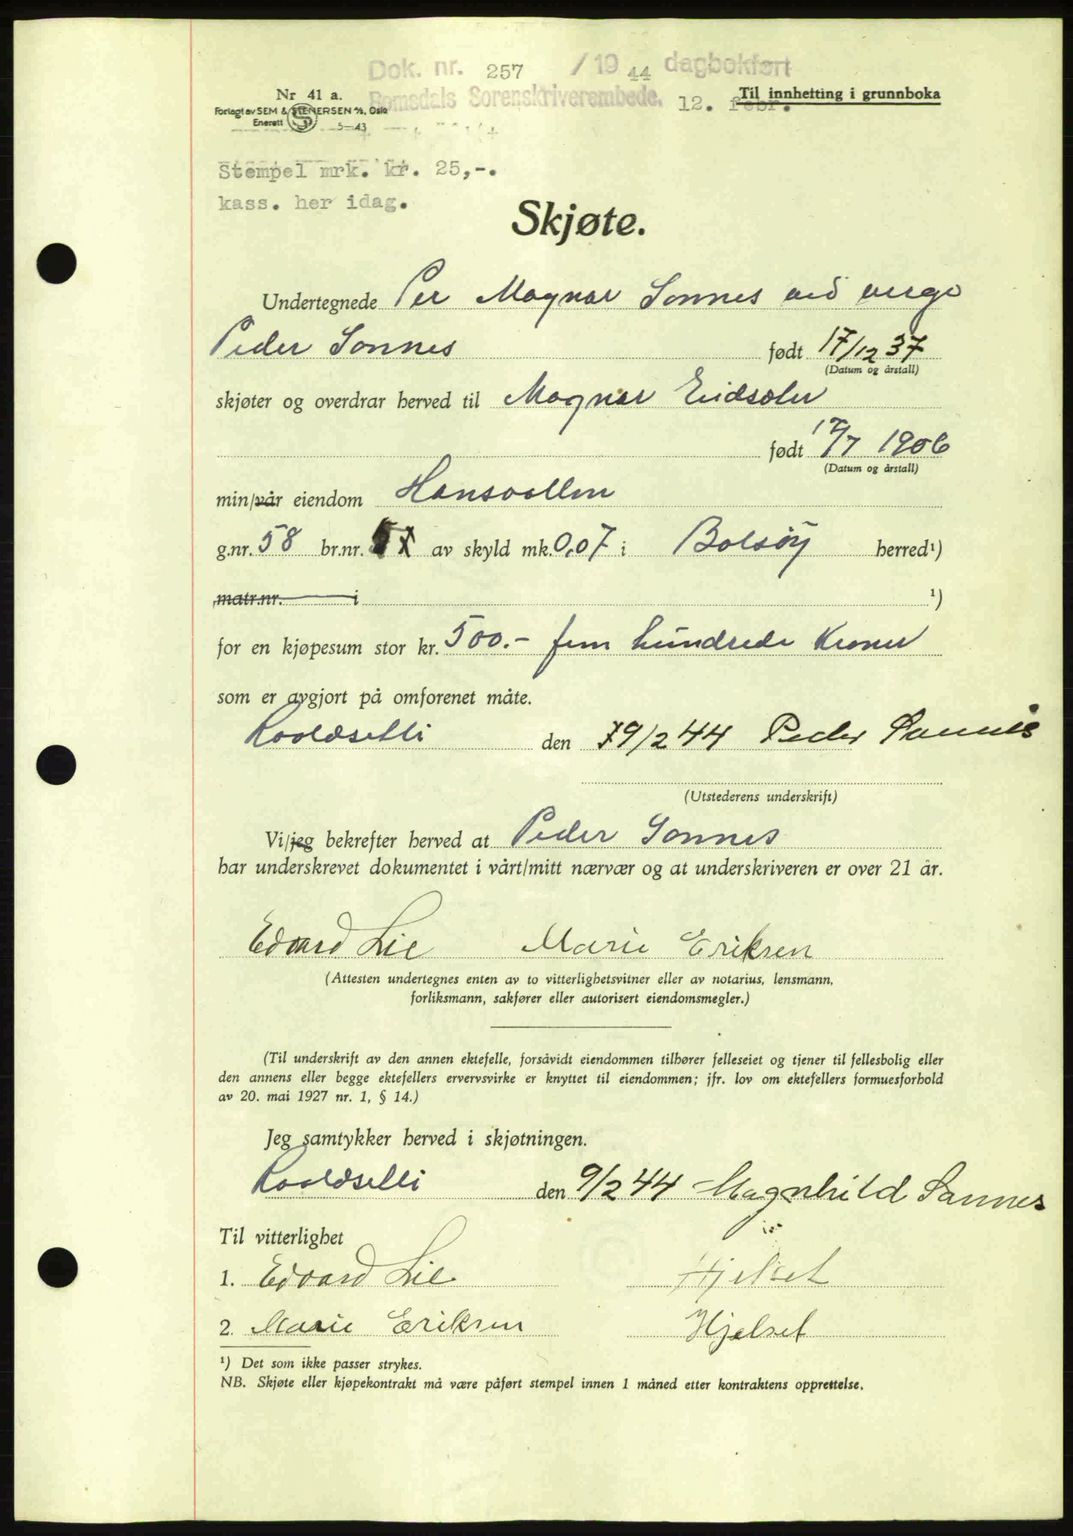 Dok. nr. 257 /19 44 dagbokført
Romsdals Sorenskriverembede. 12. febr.
Til innhetting i grunnboka
Nr 41 a.
Forlagt av SEM & STENERSEN A/S, Oslo
Enerett 5-43
Stempel mrk. kr. 25,-.
kass. her idag.
Skjøte.
Undertegnede Per Magnar Sonnes ved verge
Peder Sonnes født 17/12 37
(Datum og årstall)
skjøter og overdrar herved til Magnar Eidsæter
født 17/7 1906
(Datum og årstall)
min/vår eiendom Hansvollen
g.nr. 58 br.nr. av skyld mk. 0.07 i Bolsøy herred¹)
matr.nr. i ¹)
for en kjøpesum stor kr. 500.- fem hundrede Kroner
som er avgjort på omforenet måte.
den 9/2 44 Peder Sonnes
(Utstederens underskrift)
Vi/jeg bekrefter herved at Peder Sonnes
har underskrevet dokumentet i vårt/mitt nærvær og at underskriveren er over 21 år.
Edvard Lie Marie Eriksen
(Attesten undertegnes enten av to vitterlighetsvitner eller av notarius, lensmann,
forliksmann, sakfører eller autorisert eiendomsmegler.)
(Til underskrift av den annen ektefelle, forsåvidt eiendommen tilhører felleseiet og tjener til fellesbolig eller
den annens eller begge ektefellers ervervsvirke er knyttet til eiendommen; jfr. lov om ektefellers formuesforhold
av 20. mai 1927 nr. 1, § 14.)
Jeg samtykker herved i skjøtningen.
den 9/2 44 Magnhild Sannes
Til vitterlighet
1. Edvard Lie Hjelset
2. Marie Eriksen Hjelset
¹) Det som ikke passer strykes.
NB. Skjøte eller kjøpekontrakt må være påført stempel innen 1 måned etter kontraktens opprettelse.